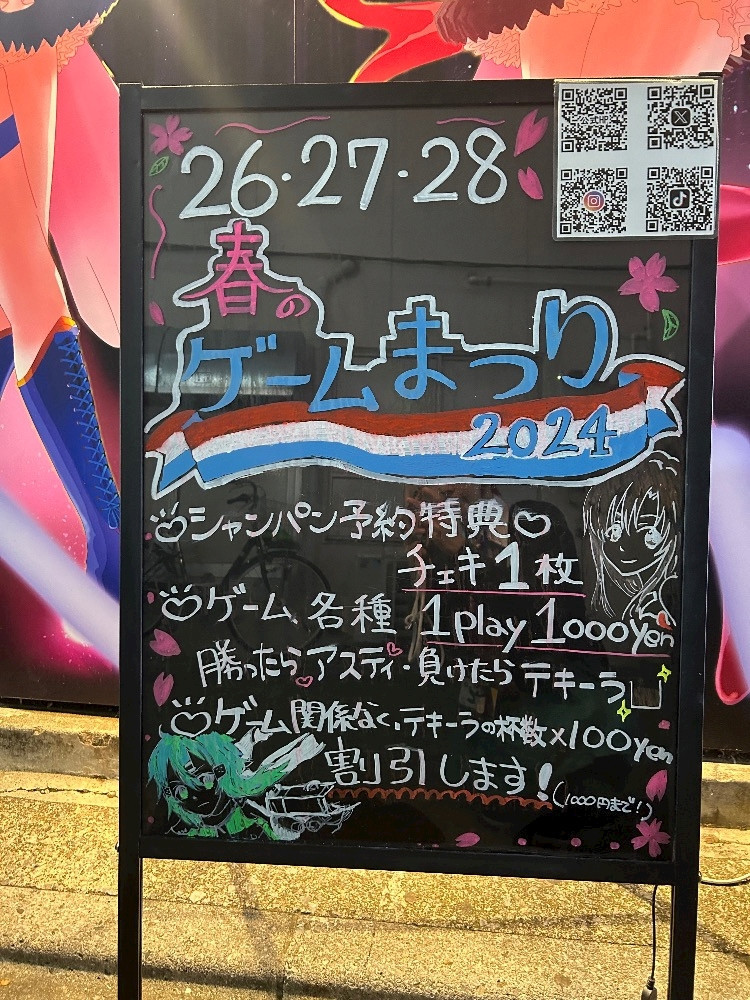 公式HP
26・27・28
春の
ゲームまつり
2024
シャンパン予約特典
チェキ1枚
ゲーム各種 1play 1000yen
勝ったらアスティ・負けたらテキーラ
ゲーム関係なく、テキーラの杯数×100yen
割引します!(1000円まで!)